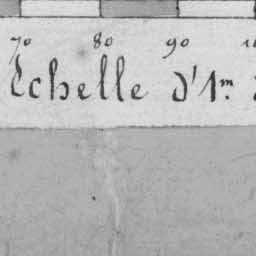 70 80 90
Echelle d'1m.